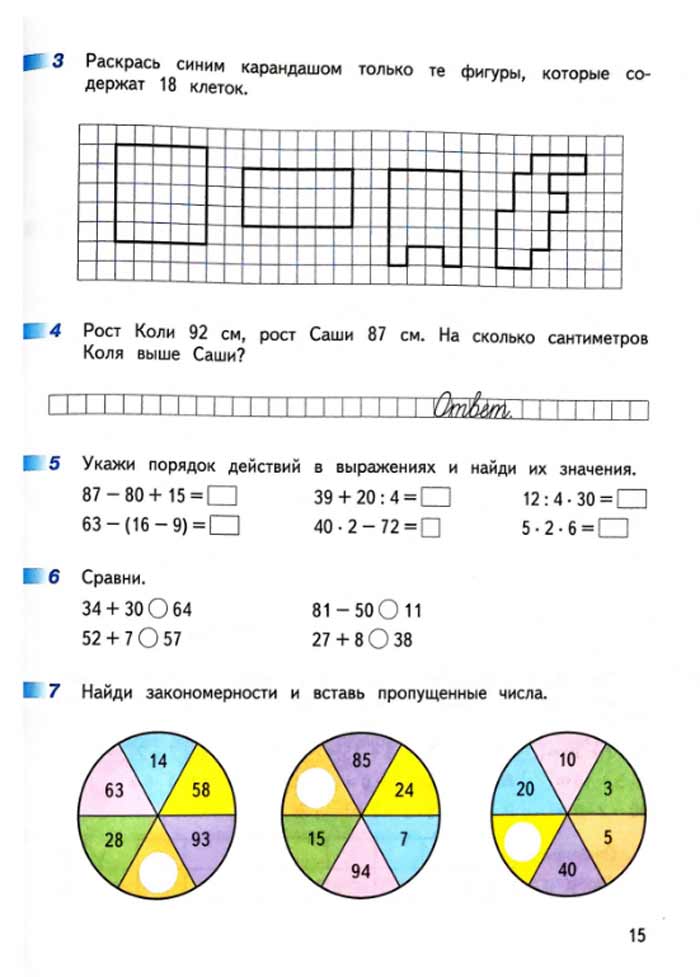 3 Раскрась синим карандашом только те фигуры, которые со-
держат 18 клеток.
4 Рост Коли 92 см, рост Саши 87 см. На сколько сантиметров
Коля выше Саши?
Ответ.
5 Укажи порядок действий в выражениях и найди их значения.
87 − 80 + 15 = 39 + 20 : 4 = 12 : 4 · 30 =
63 − (16 − 9) = 40 · 2 − 72 = 5 · 2 · 6 =
6 Сравни.
34 + 30 ◯ 64 81 − 50 ◯ 11
52 + 7 ◯ 57 27 + 8 ◯ 38
7 Найди закономерности и вставь пропущенные числа.
14 85 10
63 58 24 20 3
28 93 15 7 5
94 40
15